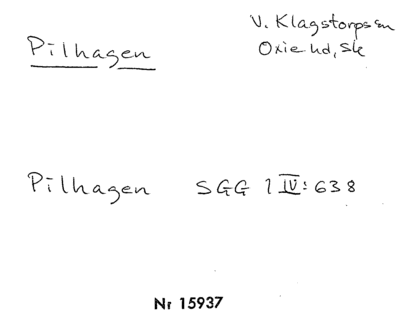 Pilhagen
V. Klagstorps sn
Oxie hd, Sk
Pilhagen SGG 1 IV: 638
Nr 15937